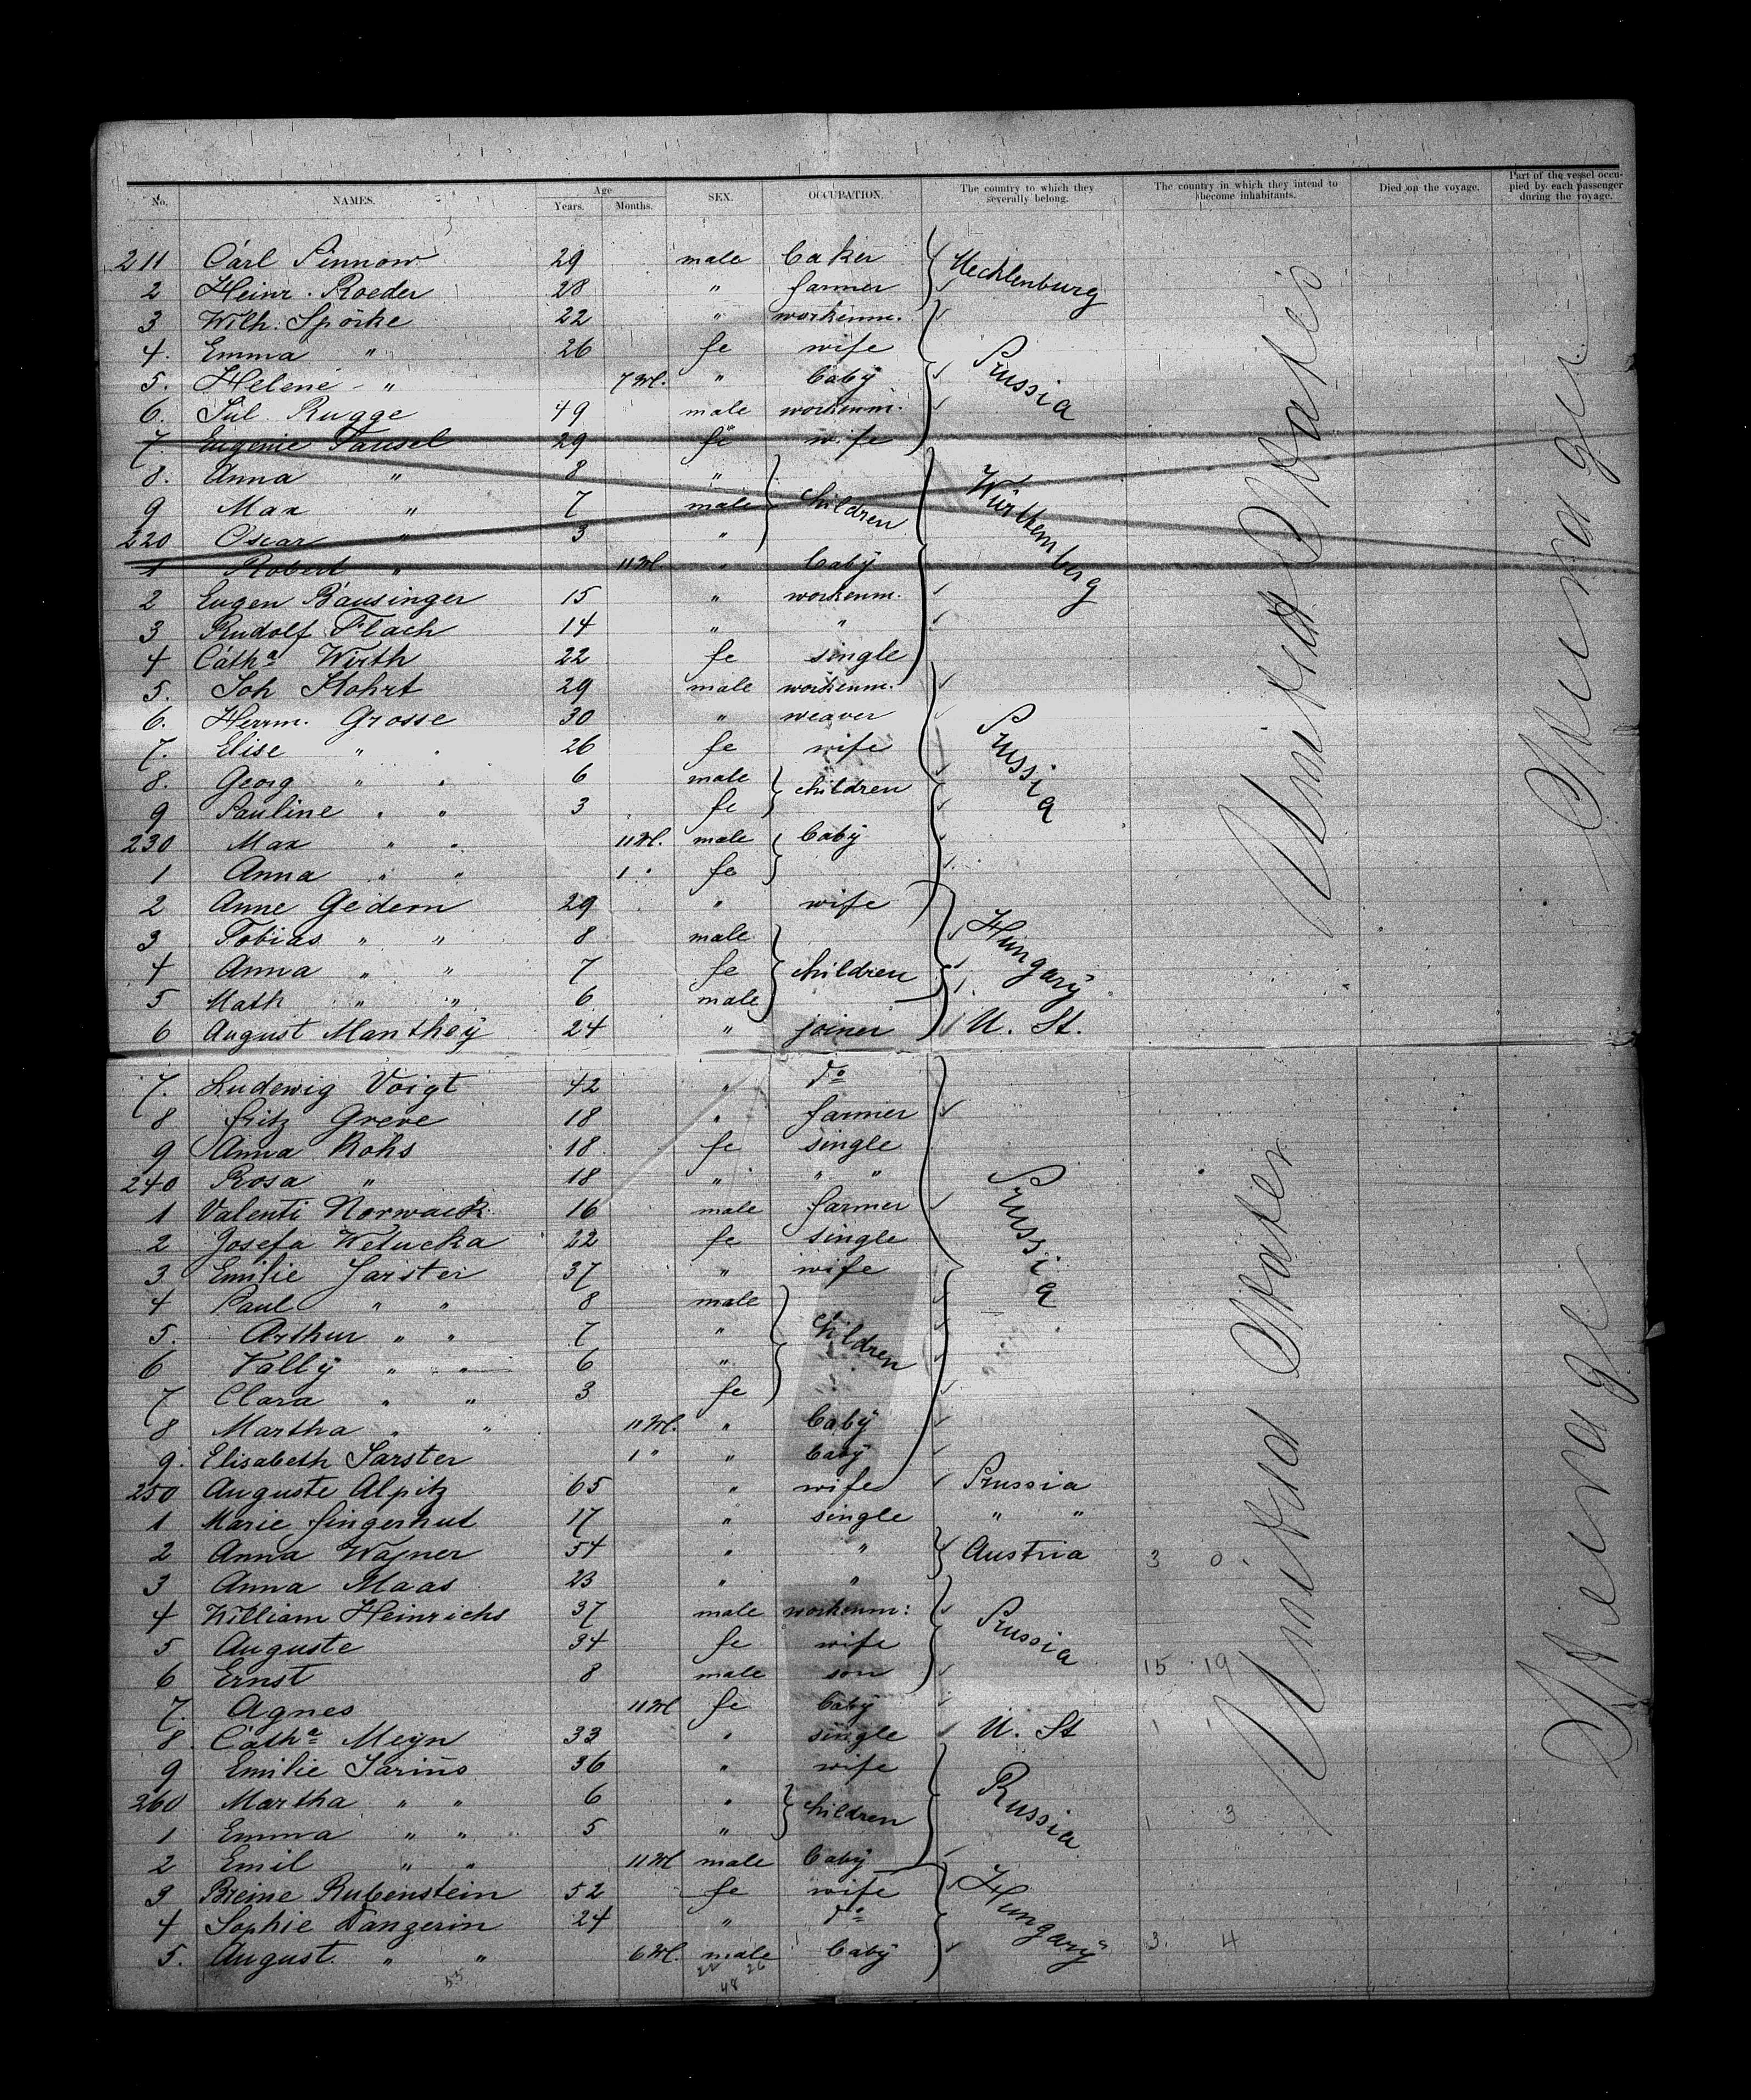 No. NAMES. Age Years. Months. SEX. OCCUPATION. The country to which they severally belong. The country in which they intend to become inhabitants. Died on the voyage. Part of the vessel occupied by each passenger during the voyage.
211 Carl Pinnow 29 male baker Mecklenburg
2 Heinr. Roeder 28 " farmer
3 Wilh. Spörke 22 " workenm.
4. Emma " 26 fe wife Prussia
5. Helene " 7 M. " baby
6. Jul. Rugge 49 male workenm.
7. Eugenie Pausel 29 fe wife
8. Anna " 8 " children Württemberg
9 Max " 7 male
220 Oscar " 3 "
1 Robert " 11 M. " baby
2 Eugen Bausinger 15 " workenm.
3 Rudolf Flach 14 " "
4 Catha Wirth 22 fe single
5. Joh Kohrt 29 male workenm.
6. Herrm. Grosse 30 " weaver Prussia
7. Elise " " 26 fe wife
8. Georg " " 6 male children
9 Pauline " " 3 fe
230 Max " " 11 M. male baby
1 Anna " " 1 " fe
2 Anne Gedern 29 " wife
3 Tobias " " 8 male Hungary
4 Anna " " 7 fe children
5 Math " " 6 male
6 August Manthey 24 " joiner U. St.
7. Ludewig Voigt 42 " do
8 Fritz Greve 18 " farmer
9 Anna Rohs 18 fe single
240 Rosa " 18 " " " Prussia
1 Valenti Norwack 16 male farmer
2 Josefa Welucka 22 fe single
3 Emilie Sarster 37 " wife
4 Paul " " 8 male
5. Arthur " " 7 " children
6 Vally " " 6 "
7 Clara " " 3 fe
8 Martha " " 11 M. " baby
9. Elisabeth Sarster 1 " " baby
250 Auguste Alpitz 65 " wife Prussia
1 Marie Fingerhut 17 " single " "
2 Anna Wagner 54 " " Austria 3 0
3 Anna Maas 23 " "
4 William Heinrichs 37 male workenm: Prussia
5 Auguste 34 fe wife
6 Ernst 8 male son 15 19
7. Agnes 11 M fe baby
8. Catha Meyn 33 " single U. St 1 1
9 Emilie Sarins 36 " wife Russia
260 Martha " " 6 " children
1 Emma " " 5 " 1 3
2 Emil " " 11 M male baby
3 Breine Rubenstein 52 fe wife Hungary
4 Sophie Tanzerin 24 " do
5. August. " " 6 M. male baby 3. 4
22 26
55 48
United States
Steerage
United States
Steerage